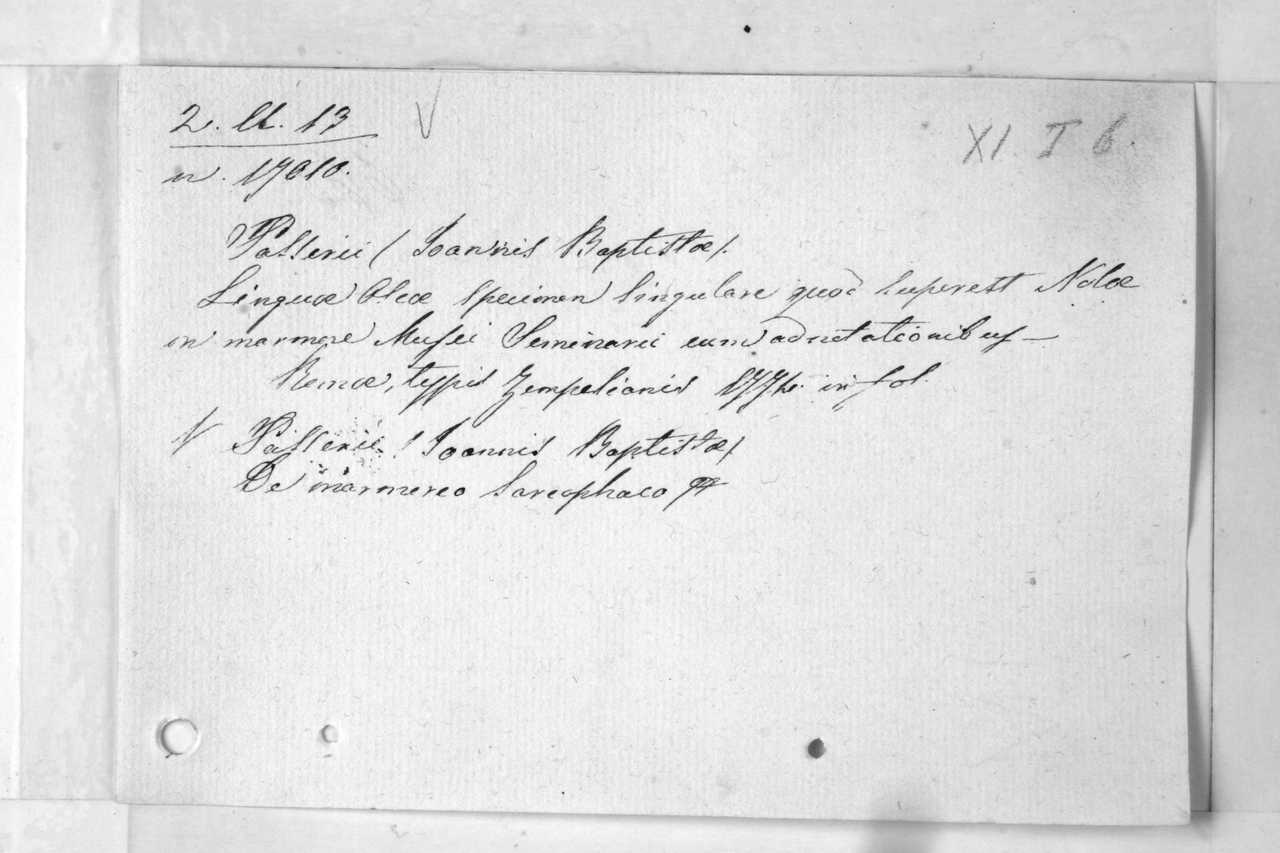 2. ll. 13 V
XI. I 6.
n. 17010.
Passerii (Ioannis Baptistæ).
Linguæ Oscæ specimen singulare quod superest Nolæ
in marmore Musei Seminarii cum adnotationibus —
Romæ, typis Zempelianis 1774. in fol.
V Passerii (Ioannis Baptistæ)
De marmoreo sarcophaco